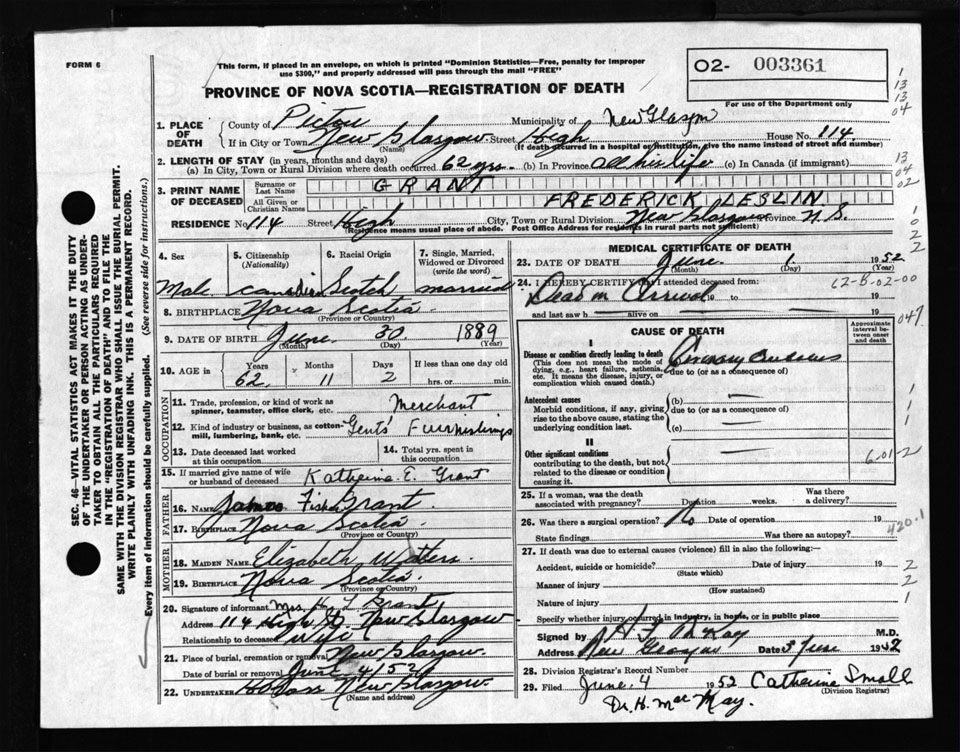 FORM 6
This form, if placed in an envelope, on which is printed "Dominion Statistics—Free, penalty for improper
use $300," and properly addressed will pass through the mail "FREE"
O2- 003361
For use of the Department only
PROVINCE OF NOVA SCOTIA—REGISTRATION OF DEATH
1. PLACE OF DEATH
County of Pictou Municipality of New Glasgow
If in City or Town New Glasgow Street High House No. 114
(Name) (If death occurred in a hospital or institution, give the name instead of street and number)
2. LENGTH OF STAY (in years, months and days)
(a) In City, Town or Rural Division where death occurred 62 yrs. (b) In Province all his life (c) In Canada (if immigrant)
3. PRINT NAME OF DECEASED
Surname or Last Name GRANT
All Given or Christian Names FREDERICK LESLIN
RESIDENCE No. 114 Street High City, Town or Rural Division New Glasgow Province N.S.
(Residence means usual place of abode. Post Office Address for residents in rural parts not sufficient)
4. Sex 5. Citizenship (Nationality) 6. Racial Origin 7. Single, Married, Widowed or Divorced (write the word)
Male Canadian Scotch married
8. BIRTHPLACE Nova Scotia
(Province or Country)
9. DATE OF BIRTH June 30 1889
(Month) (Day) (Year)
10. AGE in Years Months Days If less than one day old
62 11 2 hrs. or min.
OCCUPATION
11. Trade, profession, or kind of work as spinner, teamster, office clerk, etc. Merchant
12. Kind of industry or business, as cotton-mill, lumbering, bank, etc. Gents' Furnishings
13. Date deceased last worked at this occupation
14. Total yrs. spent in this occupation
15. If married give name of wife or husband of deceased Katherine E. Grant
FATHER
16. NAME James Grant
17. BIRTHPLACE Nova Scotia
(Province or Country)
MOTHER
18. MAIDEN NAME Elizabeth Waters
19. BIRTHPLACE Nova Scotia
(Province or Country)
20. Signature of informant Mrs. Grant
Address 114 High St. New Glasgow
Relationship to deceased Wife
21. Place of burial, cremation or removal New Glasgow
Date of burial or removal June 4 1952
22. UNDERTAKER New Glasgow
(Name and address)
MEDICAL CERTIFICATE OF DEATH
23. DATE OF DEATH June 1 1952
(Month) (Day) (Year)
24. I HEREBY CERTIFY that I attended deceased from:
62-B-02-00
Dead on Arrival 19 to 19
and last saw h alive on 19
047
CAUSE OF DEATH
Approximate interval between onset and death
I
Disease or condition directly leading to death
(This does not mean the mode of dying, e.g., heart failure, asthenia, etc. It means the disease, injury, or complication which caused death.)
(a) Coronary
due to (or as a consequence of)
Antecedent causes
Morbid conditions, if any, giving rise to the above cause, stating the underlying condition last.
(b) —
due to (or as a consequence of)
(c) —
II
Other significant conditions
contributing to the death, but not related to the disease or condition causing it.
6-01-2
25. If a woman, was the death associated with pregnancy? Duration weeks. Was there a delivery?
26. Was there a surgical operation? No Date of operation 19
420.1
State findings Was there an autopsy?
27. If death was due to external causes (violence) fill in also the following:—
Accident, suicide or homicide? Date of injury 19
(State which)
Manner of injury
(How sustained)
Nature of injury
Specify whether injury occurred in industry, in home, or in public place
Signed by H. McKay M.D.
Address New Glasgow Date 3 June 1952
28. Division Registrar's Record Number
29. Filed June 4 1952 Catherine Small
(Division Registrar)
Dr. H. MacKay.
SEC. 46—VITAL STATISTICS ACT MAKES IT THE DUTY
OF THE UNDERTAKER OR PERSON ACTING AS UNDER-
TAKER TO OBTAIN ALL THE PARTICULARS REQUIRED
IN THE "REGISTRATION OF DEATH" AND TO FILE THE
SAME WITH THE DIVISION REGISTRAR WHO SHALL ISSUE THE BURIAL PERMIT.
WRITE PLAINLY WITH UNFADING INK. THIS IS A PERMANENT RECORD.
Every item of information should be carefully supplied. (See reverse side for instructions.)
1
13
13
04
13
04
02
1
0
2
2
1
1
1
2
2
1